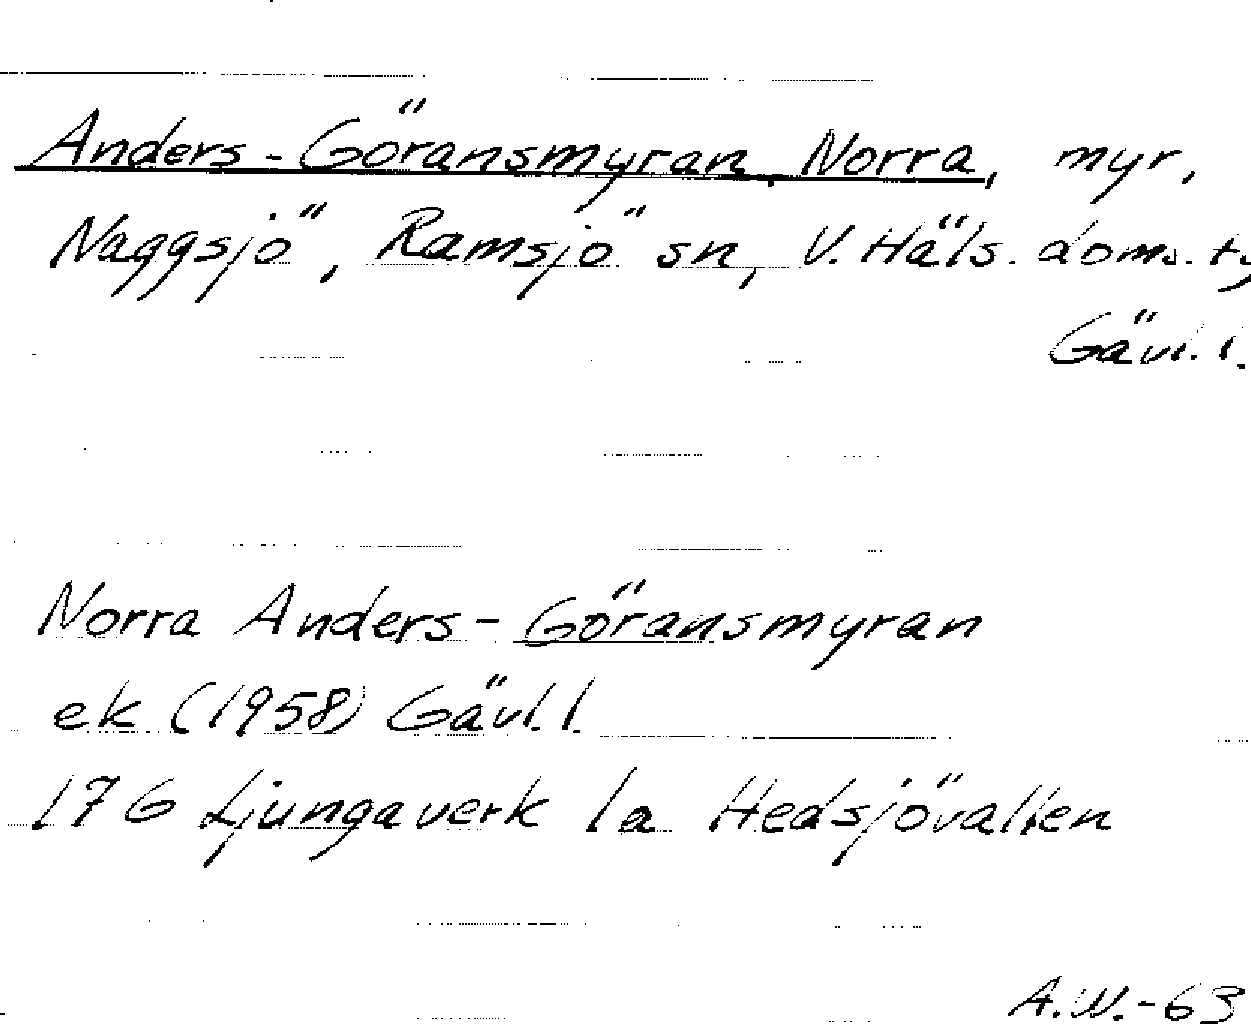 Anders-Göransmyran, Norra, myr,
Naggsjö, Ramsjö sn, V. Häls. doms. t
Gävl. l.
Norra Anders-Göransmyran
ek (1958) Gävl. l.
17G Ljungaverk 1a Hedsjövallen
A.W.-63